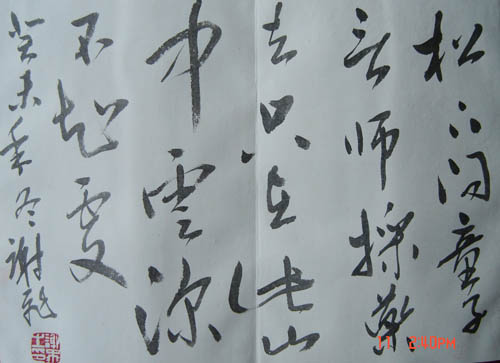 松下问童子
言师採藥
去只在此山
中雲深
不知處
癸未年冬謝
11 2:40PM